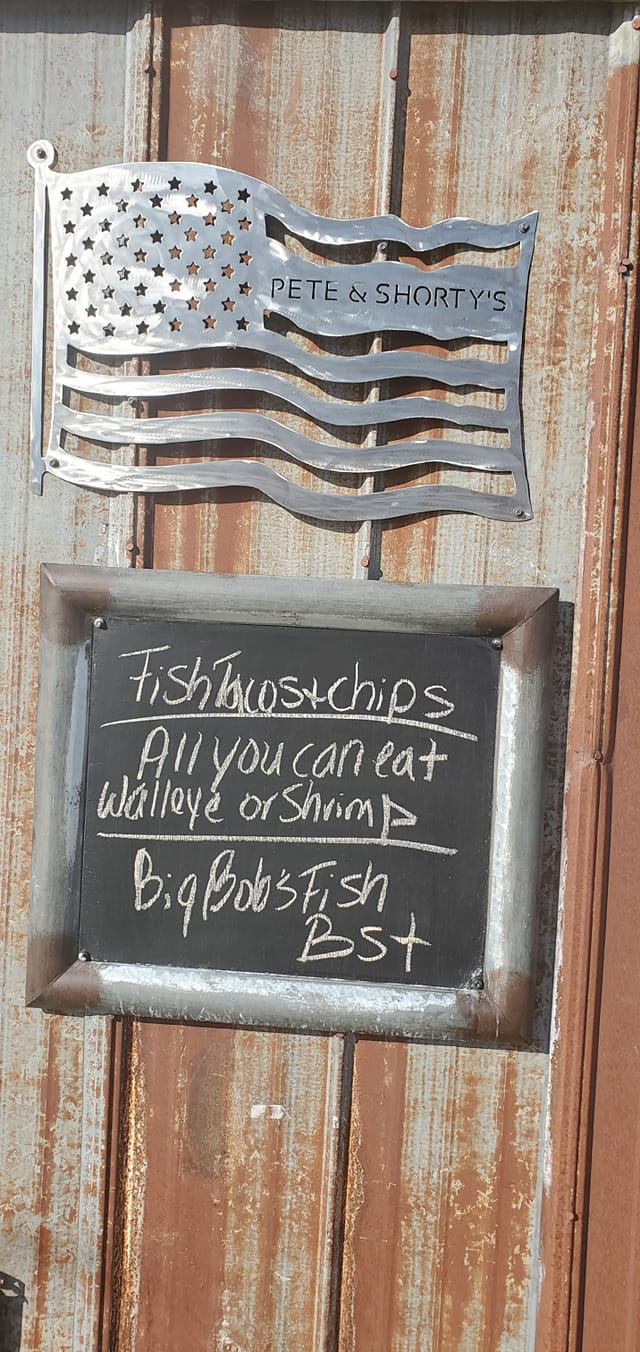 PETE & SHORTY'S
Fish Tacos + chips
All you can eat
Walleye or Shrimp
Big Bob's Fish
BSt